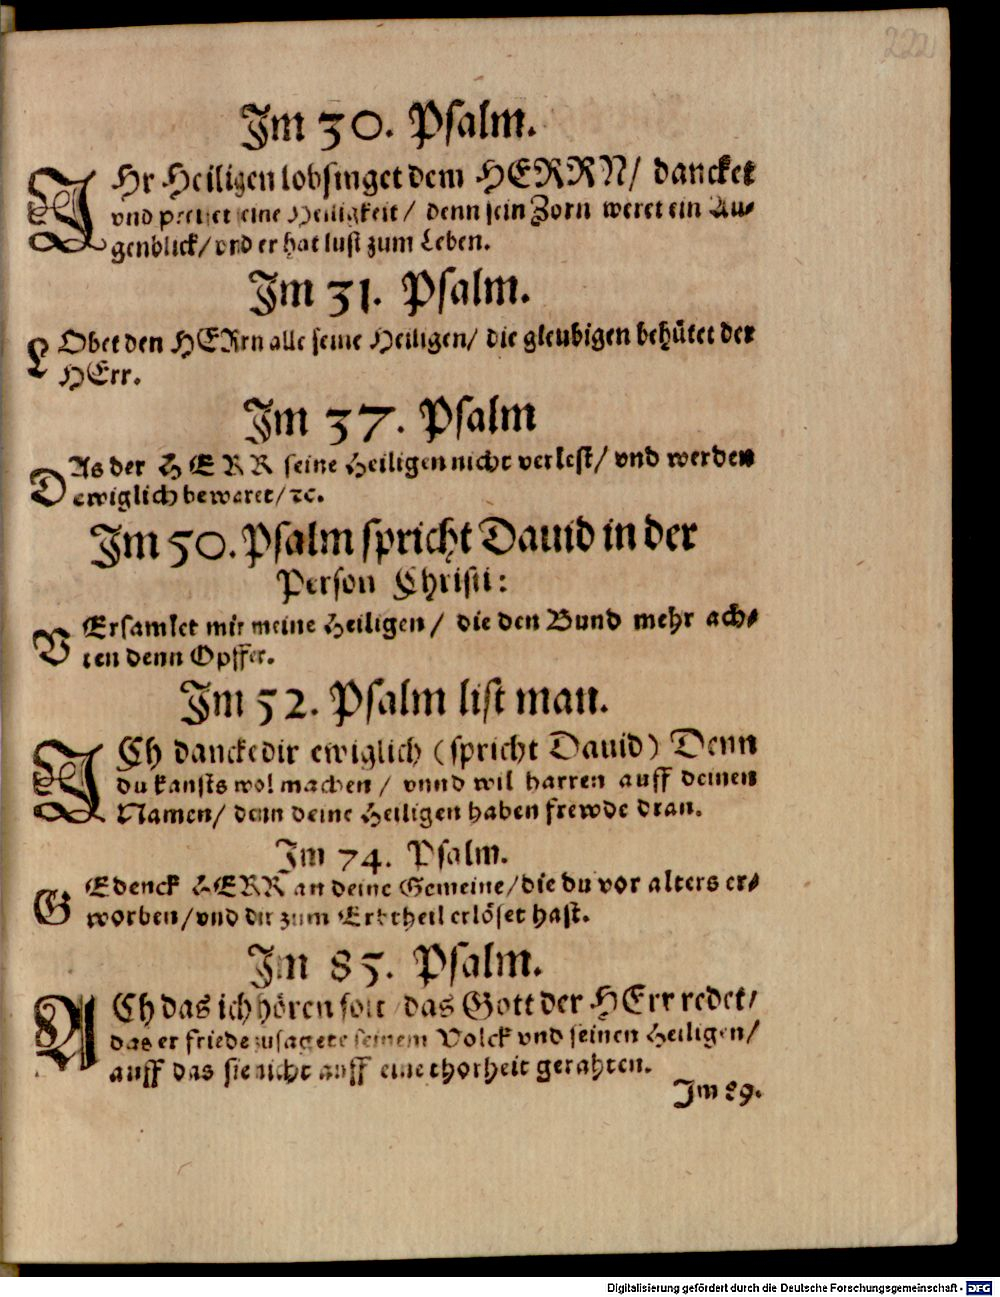 222
Im 30. Psalm.
IHr Heiligen lobsinget dem HERRN/ dancket
vnd preiset seine Heiligkeit/ denn sein Zorn weret ein Au-
genblick/ vnd er hat lust zum Leben.
Im 31. Psalm.
LObet den HERrn alle seine Heiligen/ die gleubigen behütet der
HErr.
Im 37. Psalm
DAs der HERR seine Heiligen nicht verlest/ vnd werden
ewiglich bewaret/ ꝛc.
Im 50. Psalm spricht Dauid in der
Person Christi:
VErsamlet mir meine Heiligen/ die den Bund mehr ach-
ten denn Opffer.
Im 52. Psalm list man.
ICh dancke dir ewiglich (spricht Dauid) Denn
du kansts wol machen/ vnnd wil harren auff deinen
Namen/ denn deine Heiligen haben frewde dran.
Im 74. Psalm.
GEdenck HERR an deine Gemeine/ die du vor alters er-
worben/ vnd dir zum Erbtheil erlöset hast.
Im 85. Psalm.
ACh das ich hören solt das Gott der HErr redet/
das er friede zusagete seinem Volck vnd seinen Heiligen/
auff das sie nicht auff eine thorheit gerahten.
Im 89.
Digitalisierung gefördert durch die Deutsche Forschungsgemeinschaft - DFG